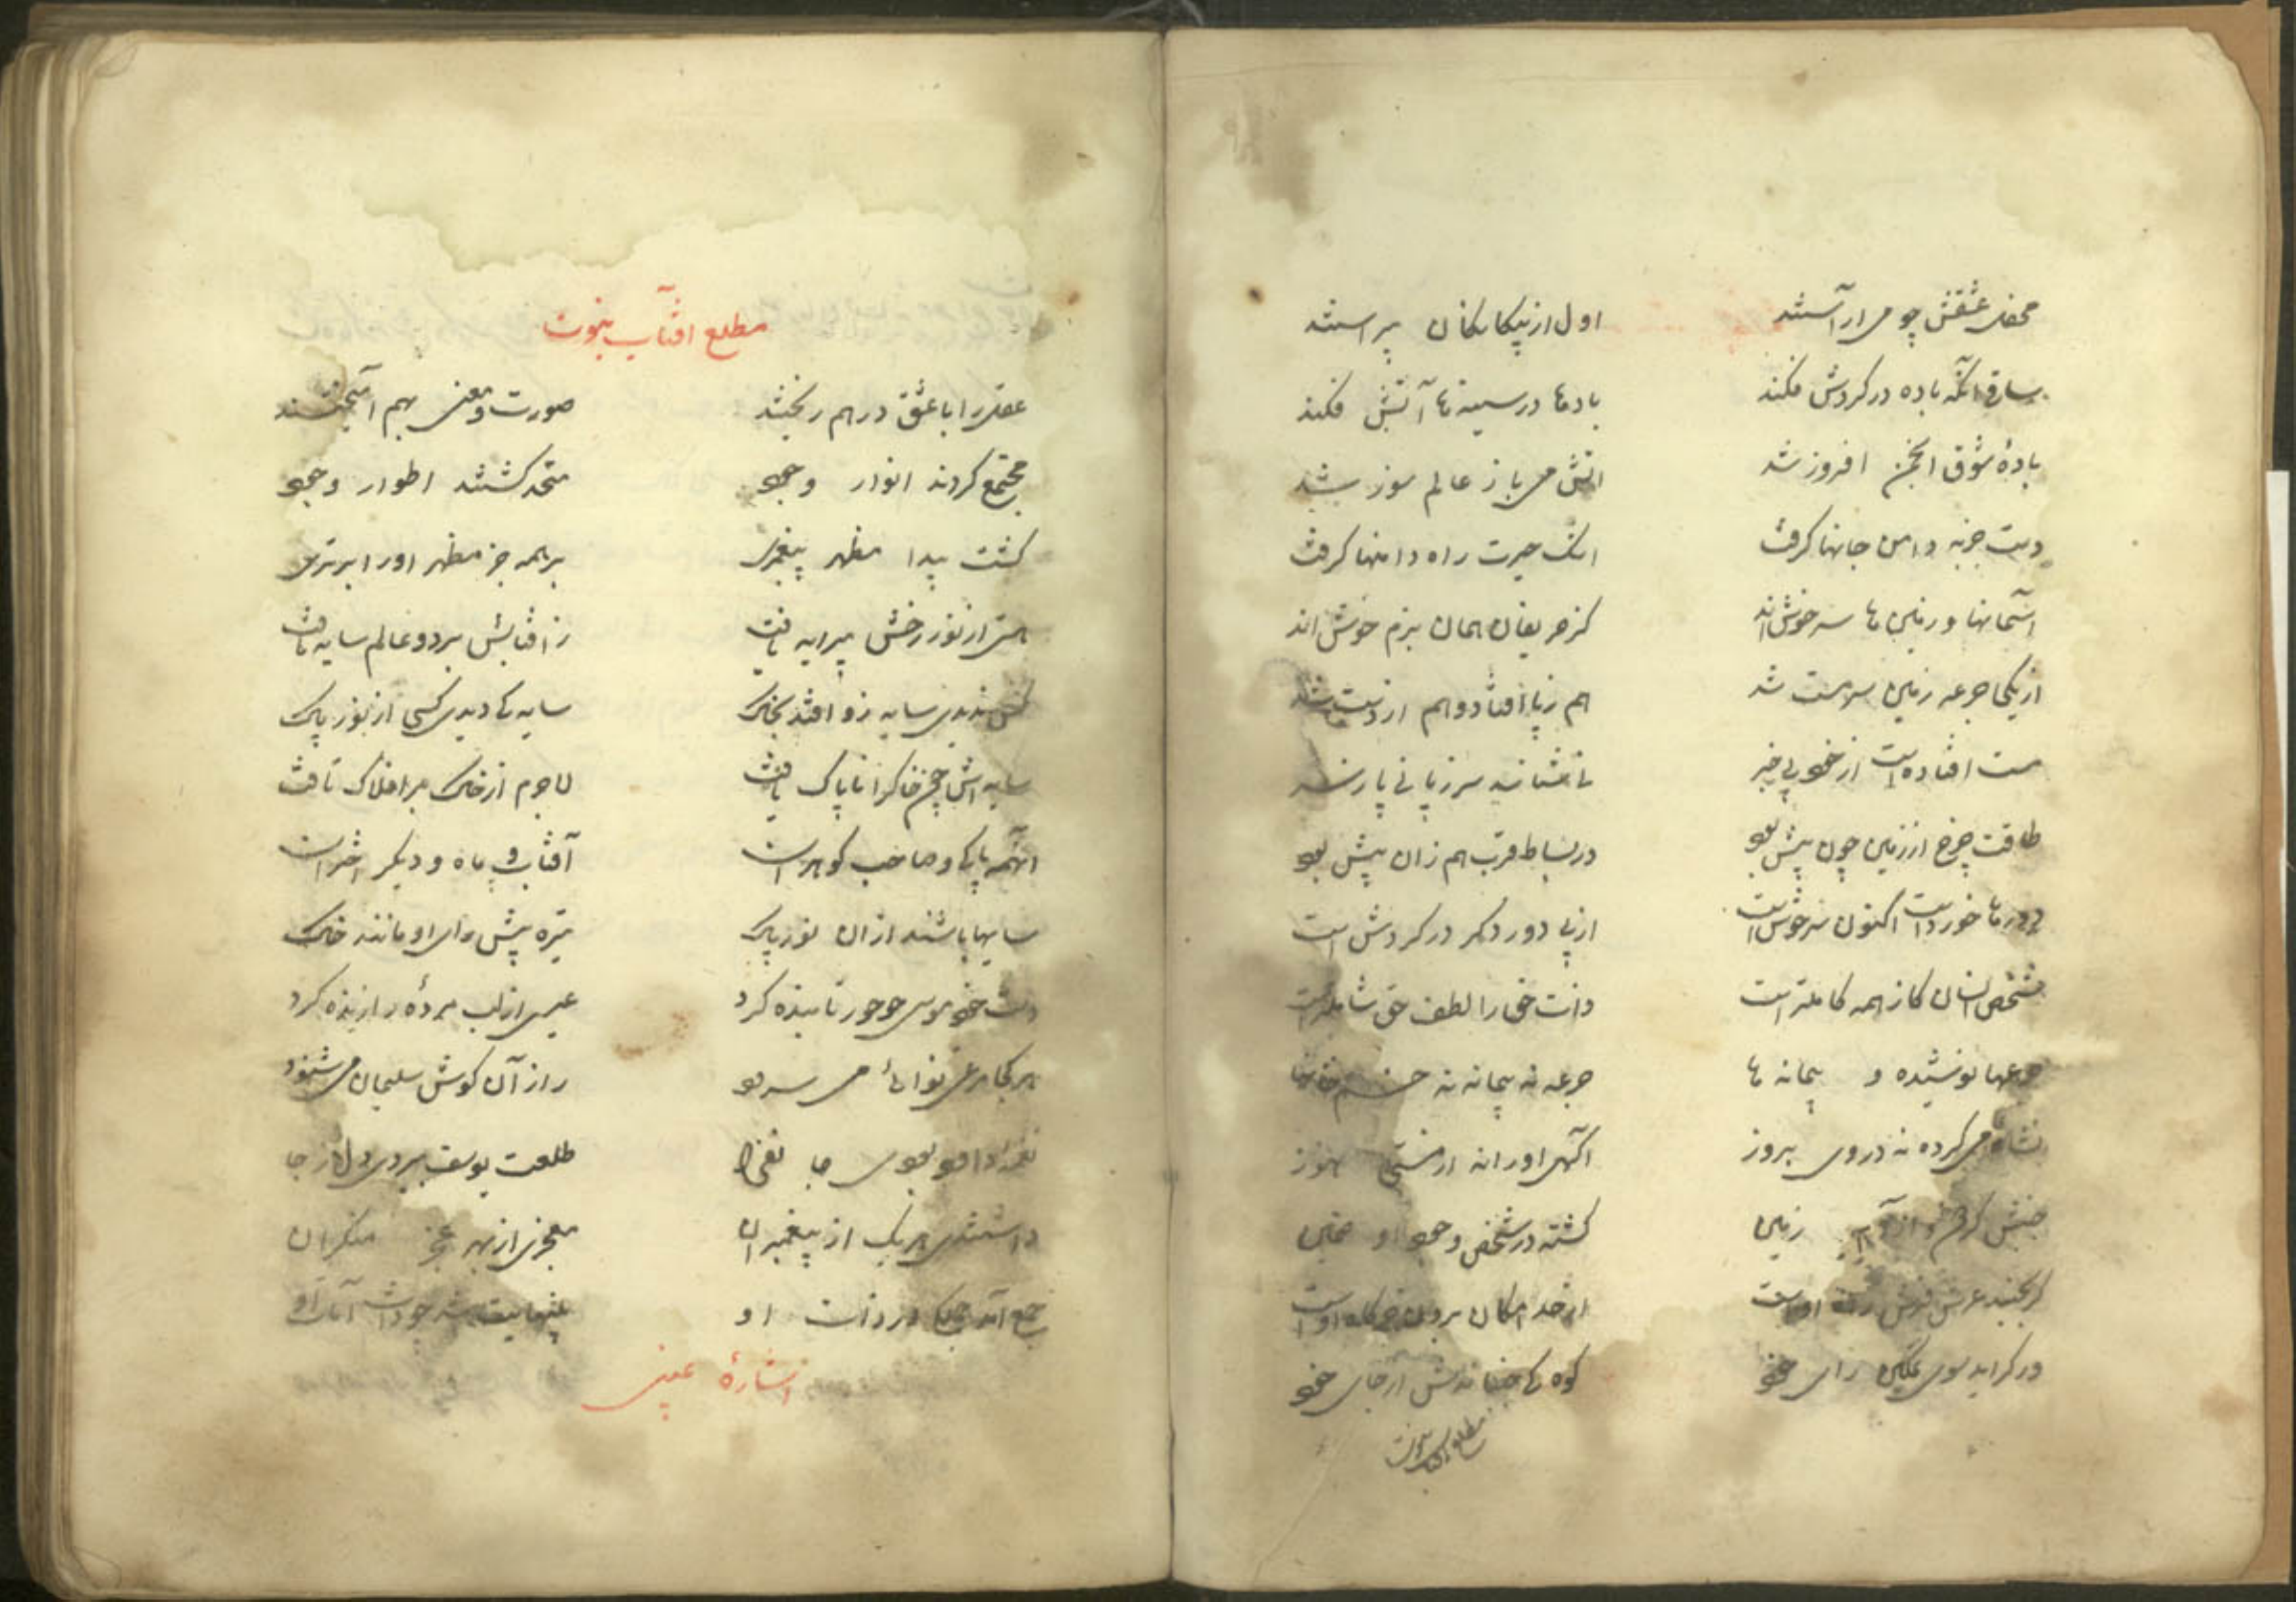 محفل عشقش چو می ار آستند اول از بیکانکان پیراستند
ساقی انکه باده در کردش فکند بادها در سینه‌ها آتش فکند
بادهٔ شوق انجمن افروز شد اتش می باز عالم سوز شد
دست جزبه دامن جانها کرفت اشک حیرت راه دامنها کرفت
آسمانها و زمین ها سرخوش‌اند کز حریفان همان بزم خوش‌اند
از یکی جرعه زمین سرمست شد هم ز پا افتاد و هم از دست شد
مست افتاده است از خود بی خبر
طاقت چرخ از زمین چون پیش بود در بساط قرب هم زان پیش بود
دورها خورداست اکنون سرخوش است از پی دور دکر در کردش است
شخص انسان کاز همه کاملتر است ذات حق را لطف حق شاملتر است
جرعها نوشیده و پیمانه ها جرعه نه پیمانه نه خمخانها
می کرده نه در وی بروز آکهی او را نه از مستی هنوز
جنبش زمین کشته در شخص وجود او
کر بجنبد عرش فرش راه اوست از حد امکان برون خرکاه اوست
ور کراید سوی تمکین رای خود کوه کی جنباندش از جای خود
مطلع افتاب نبوت
مطلع افتاب نبوت
عقل را با عشق در هم ریختند صورت و معنی بهم آمیختند
مجتمع کردند انوار وجود متحد کشتند اطوار وجود
کشت پیدا مظهر پیغمبری بر همه جز مظهر او را برتری
هستی از نور رخش پیرایه یافت ز افتابش هر دو عالم سایه یافت
کس ندیدی سایه زو افتد بخاک سایه کی دیدی کسی از نور پاک
سایه اش چون خاکرا ناپاک یافت لاجرم از خاک بر افلاک تافت
آنهمه پاکی و صاحب کوهران آفتاب و ماه و دیکر اختران
سایها باشند از ان نور پاک تیره پیش رای او مانند خاک
دست خود موسی چو خور تابنده کرد عیسی از لب مردهٔ را زنده کرد
هر کجا مرغی نوائی می سرود راز آن کوش سلیمان می شنود
نغمه داود بودی جا نفزا طلعت یوسف ببردی دل ز جا
داشتندی هر یک از پیغمبران معجزی از بهر عجز منکران
جمع آمد جملکی در ذات او
اشارهٔ غیبی